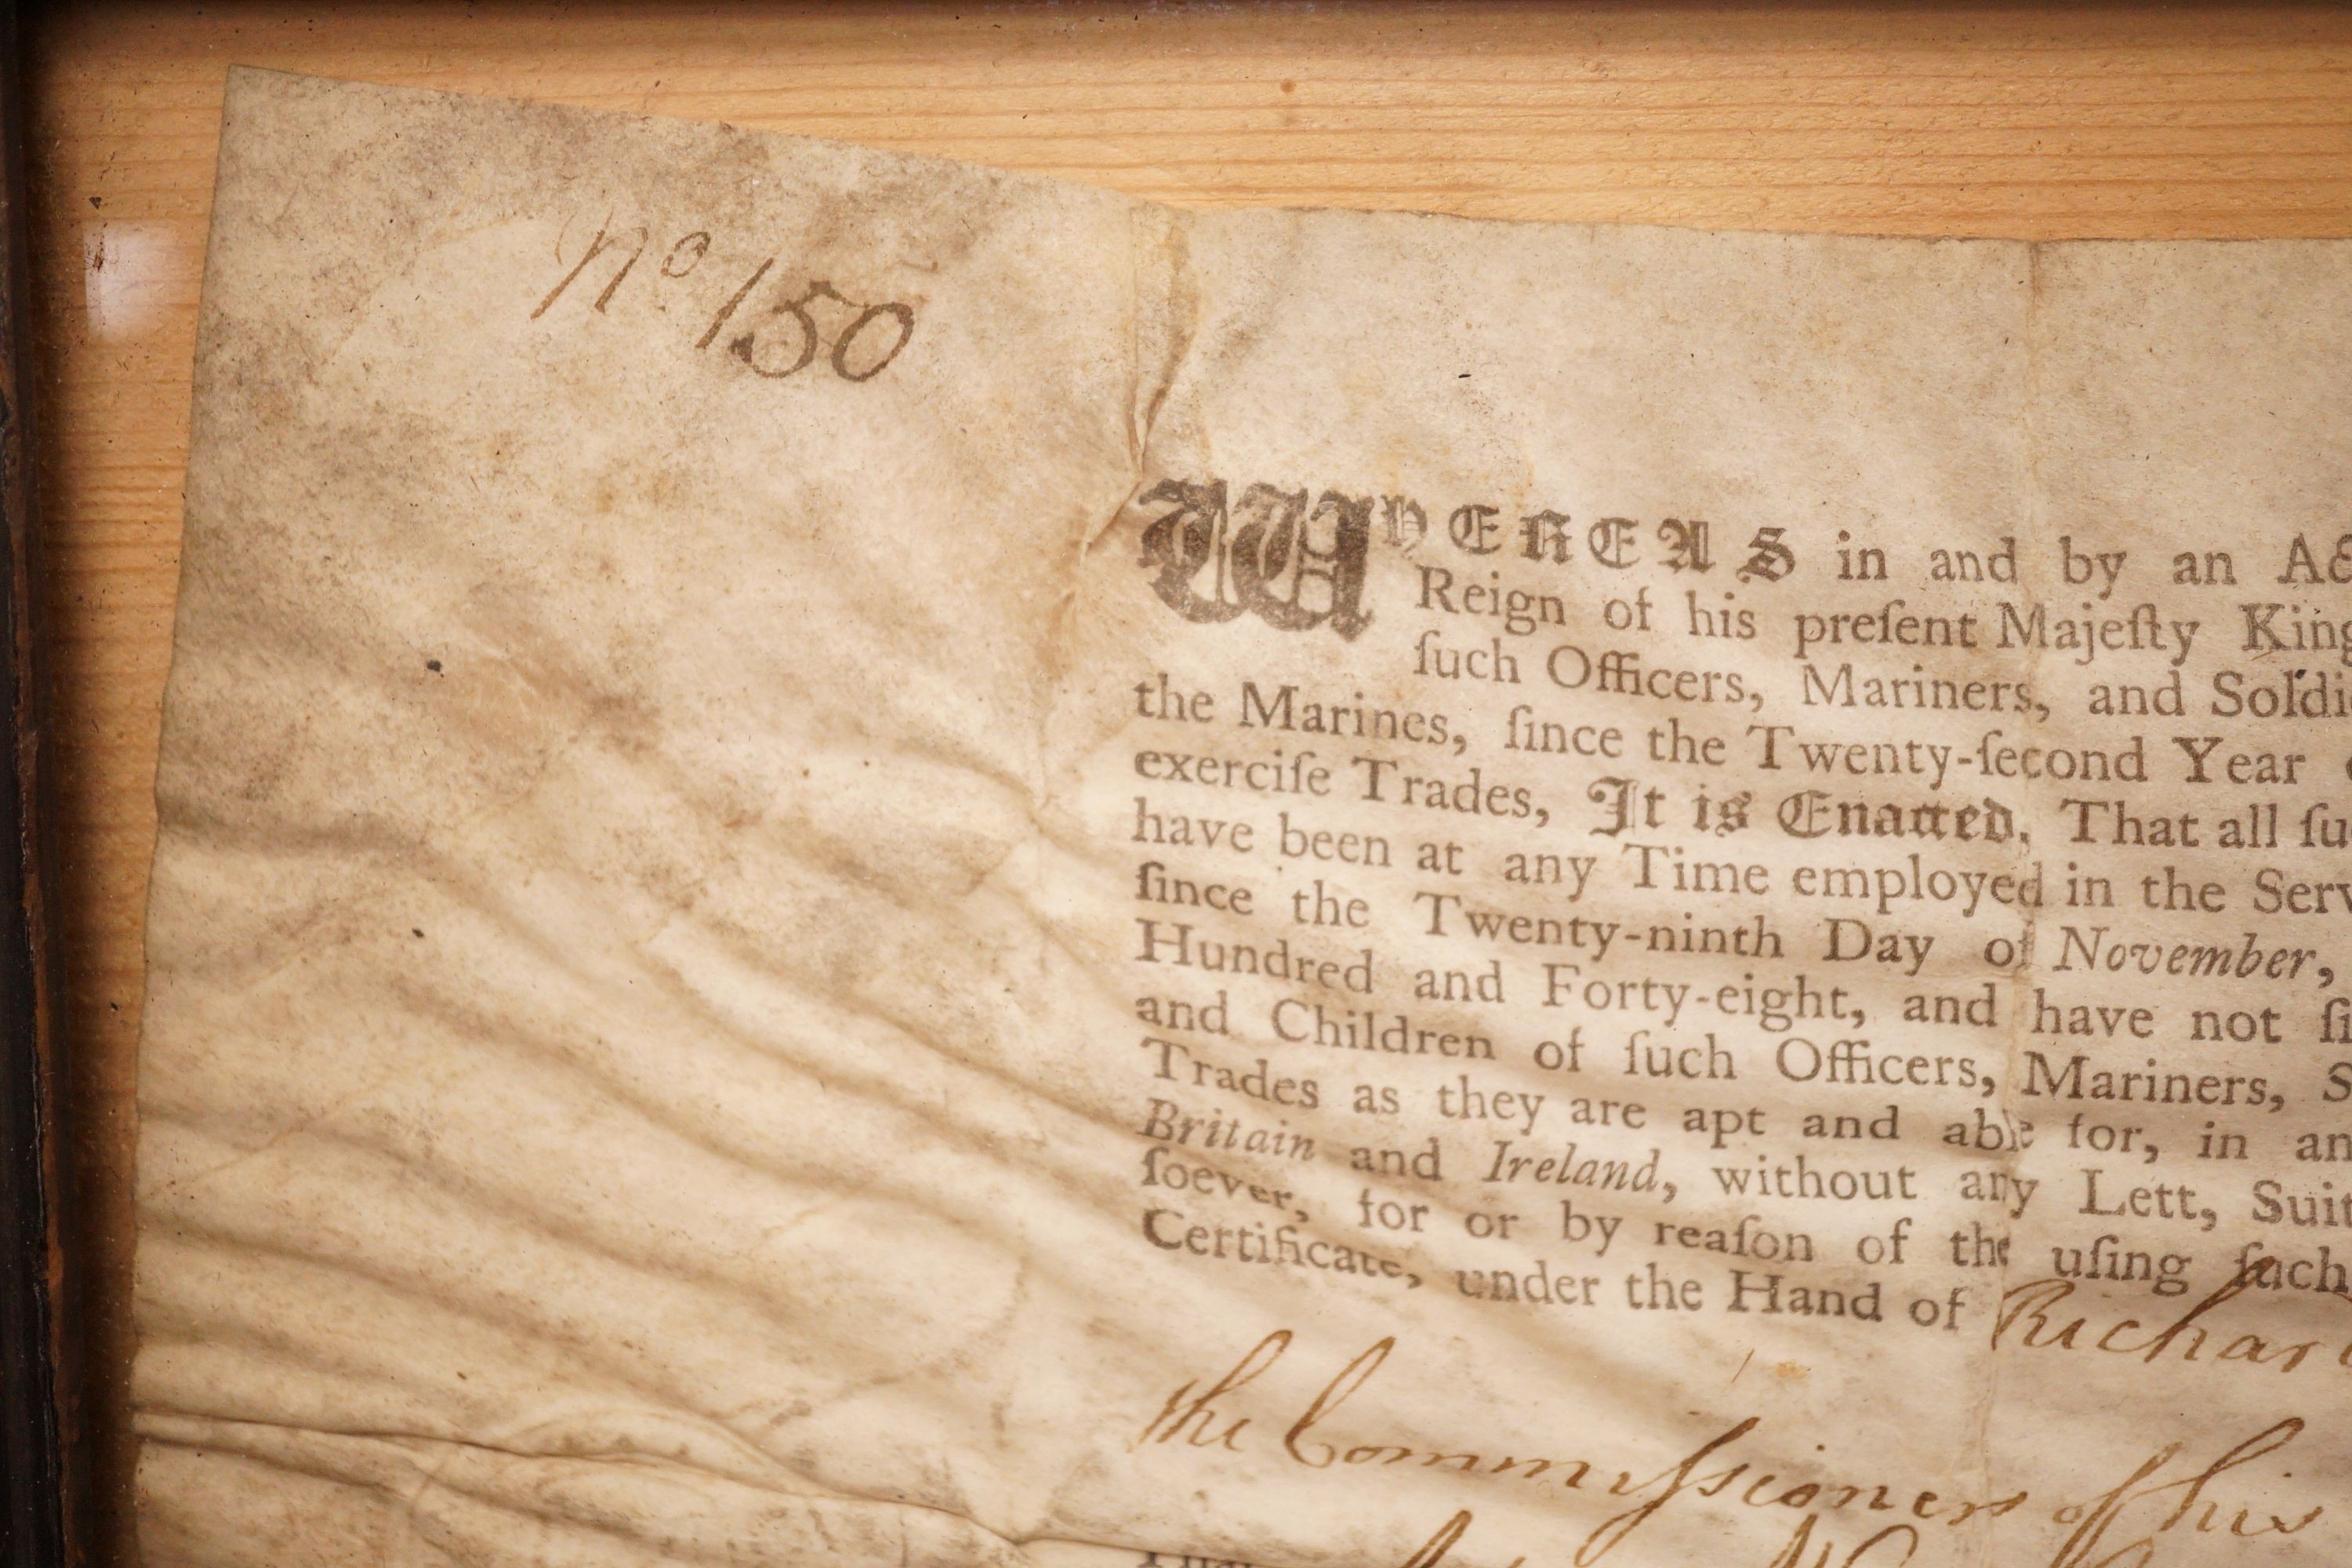 No 150
WHEREAS in and by an Act
Reign of his preſent Majeſty King
ſuch Officers, Mariners, and Soldi
the Marines, ſince the Twenty-ſecond Year
exerciſe Trades, It is Enacted, That all ſu
have been at any Time employed in the Serv
ſince the Twenty-ninth Day of November,
Hundred and Forty-eight, and have not ſi
and Children of ſuch Officers, Mariners, S
Trades as they are apt and able for, in an
Britain and Ireland, without any Lett, Suit
ſoever, for or by reaſon of the uſing ſuch
Certificate, under the Hand of Richar
the Commiſsioners of his